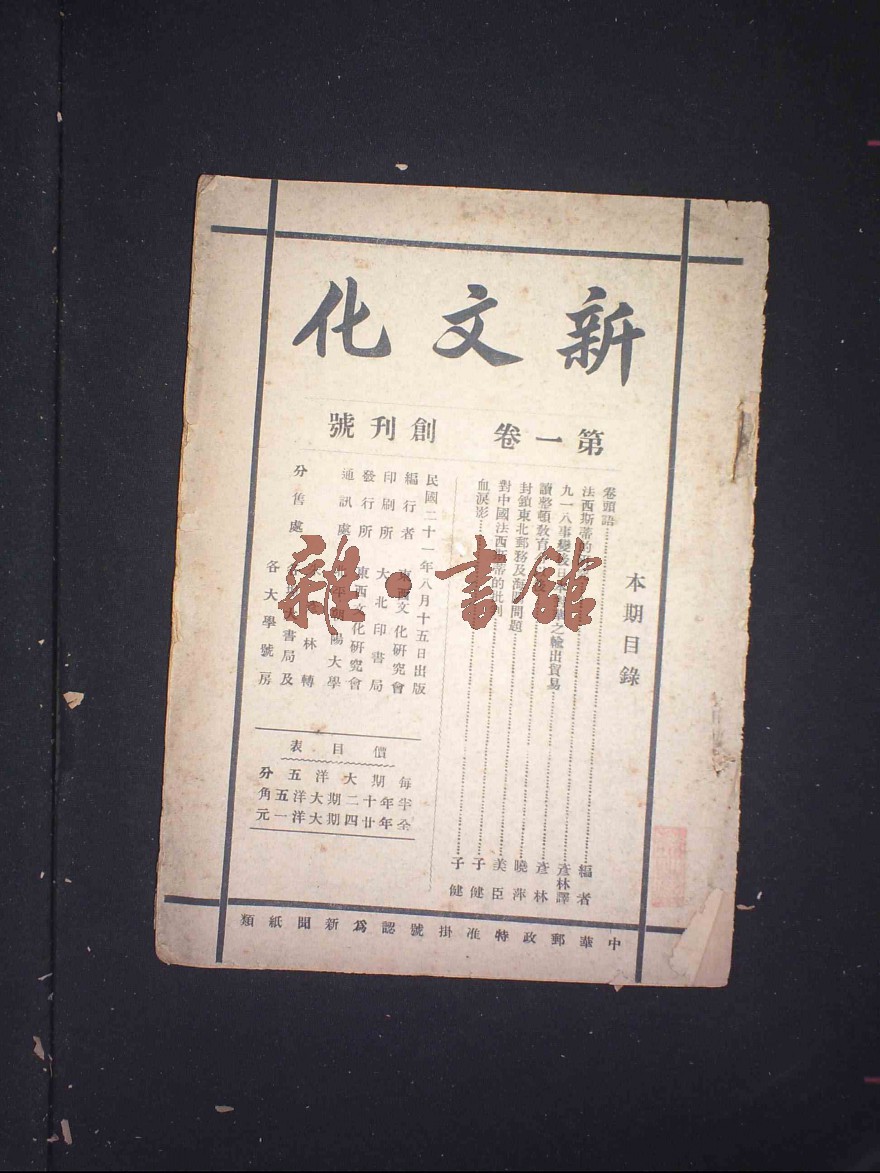 新文化
第一卷 創刊號
本期目錄
卷頭語……編者
法西斯蒂的……彥林譯
九一八事變後日 之輸出貿易……彥林
讀整頓教育……曉萍
封鎖東北郵務及海關問題……美臣
對中國法西斯蒂的批判……子健
血淚影……子健
民國二十一年八月十五日出版
編行者 東西文化研究會
印刷所 大北印書局
發行所 東西文化研究會
通訊處 陽大學
林轉
分售處 書局及
各大學號房
價目表
每期大洋五分
半年十二期大洋五角
全年廿四期大洋一元
中華郵政特准掛號認爲新聞紙類
雜·書館